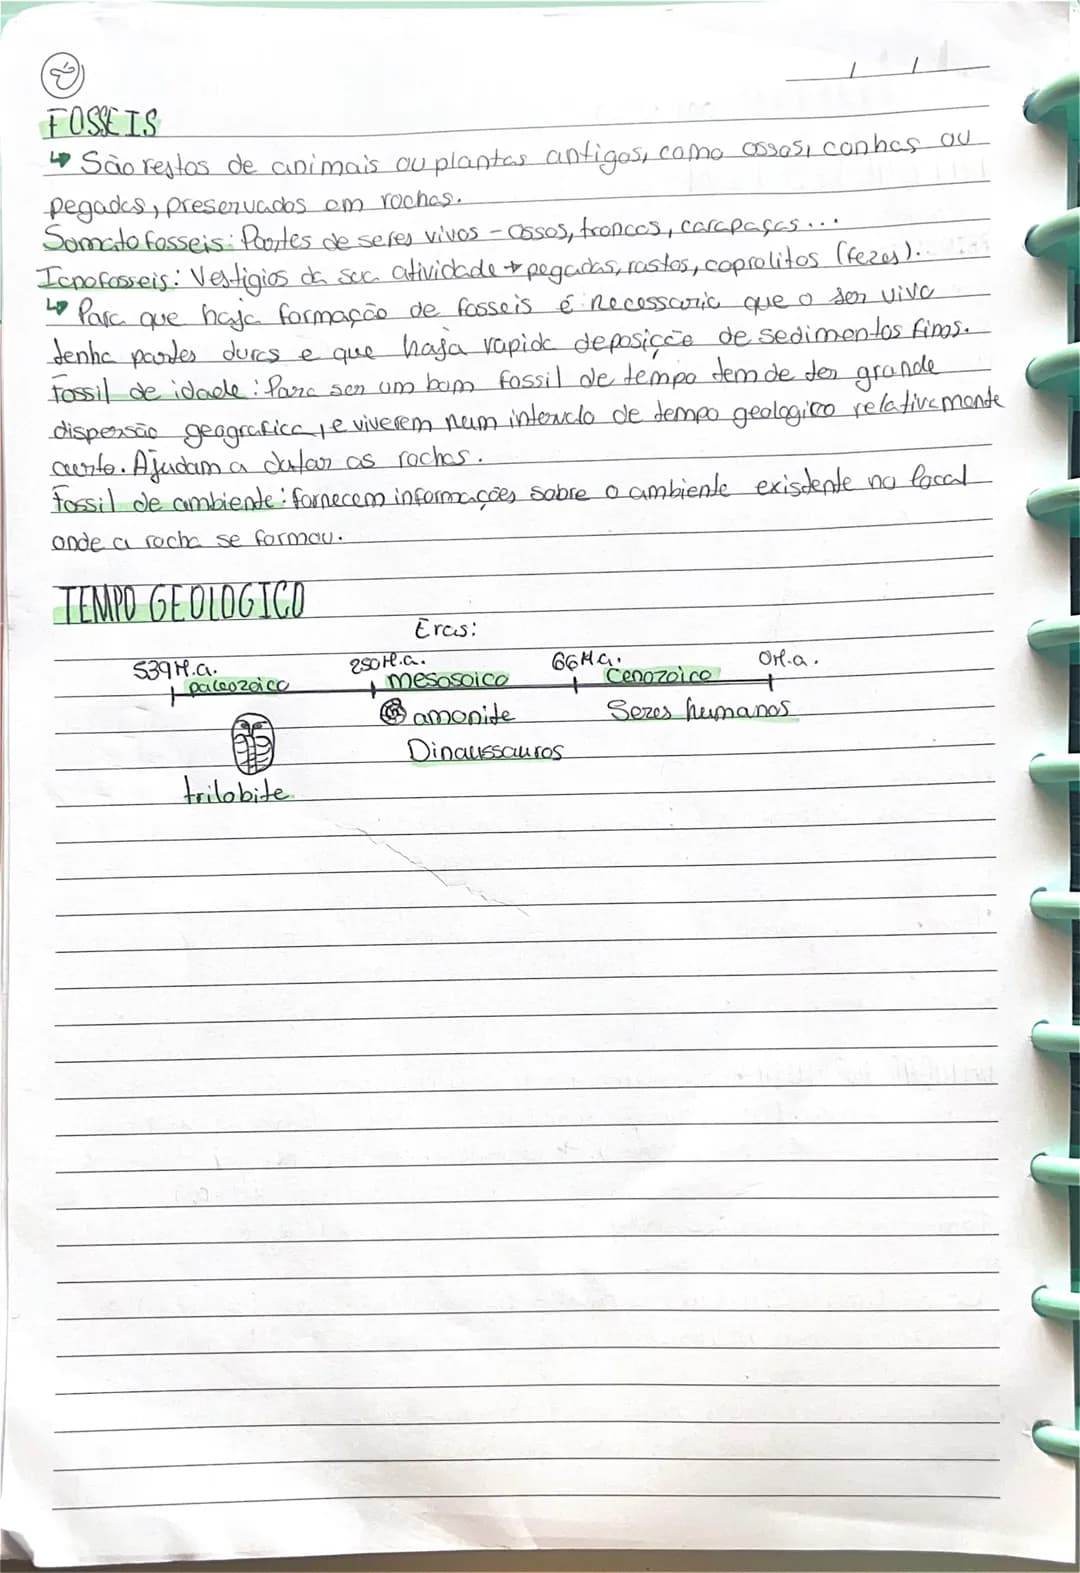 FOSSEIS
↳ São restos de animais ou plantas antigos, como ossos, conhas ou
pegadas, preservados em rochas.
Somato fosseis: Partes de seres vivos - ossos, troncos, carapaças...
Icnofosseis: Vestigios da sua atividade → pegadas, rastos, coprolitos (fezes).
↳ Para que haja formação de fosseis é necessario que o ser vivo
tenha partes duras e que haja rapida deposição de sedimentos finos.
Fossil de idade: Para ser um bom fossil de tempo tem de ter grande
dispersão geografica, e viverem num intervalo de tempo geologico relativamente
curto. Ajudam a datar as rochas.
Fossil de ambiente: fornecem informações sobre o ambiente existente no local
onde a rocha se formou.
TEMPO GEOLOGICO
Eras:
539 M.a. 250 M.a. 66 M.a. 0 M.a.
paleozoico mesosoico Cenozoico
amonite Seres humanos
Dinaussauros
trilobite